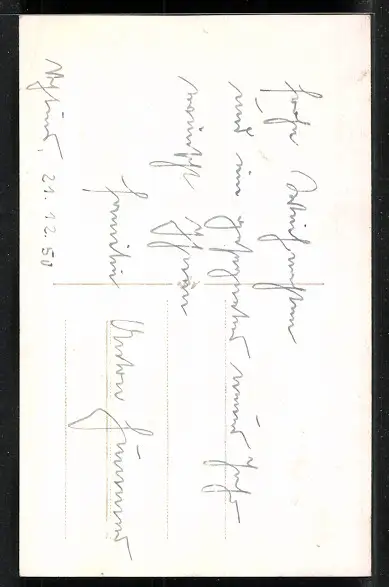 Frohe Weihnachten
und ein gesegnetes neues Jahr
wünscht Ihnen
Familie
Anton
21.12.50